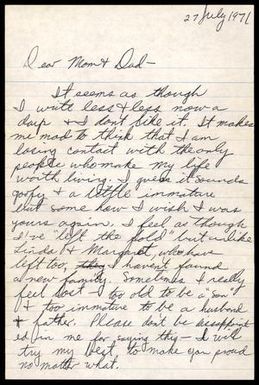 27 July 1971
Dear Mom & Dad—
It seems as though
I write less & less now a
days & I don't like it. It makes
me mad to think that I am
losing contact with the only
people who make my life
worth living. I guess it sounds
goofy & a little immature
but some how I wish I was
yours again. I feel as though
I've "left the fold" but unlike
Linda & Margaret, who have
left too, I haven't found
a new family. Sometimes I really
feel lost – too old to be a son
& too immature to be a husband
& father. Please don't be disappoint
ed in me for saying this – I will
try my best to make you proud
no matter what.